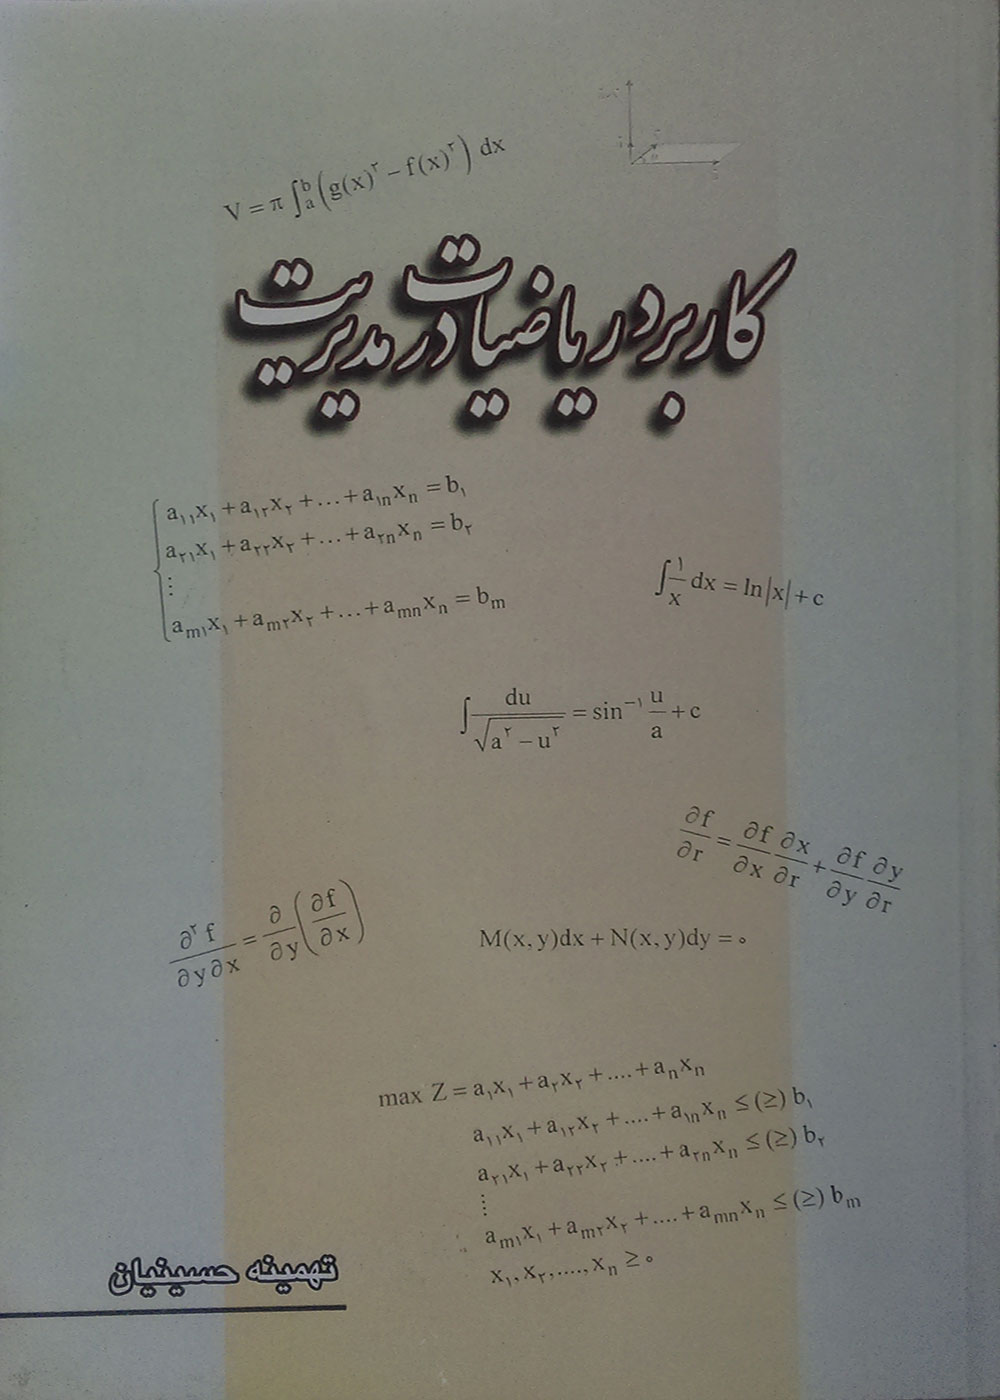 V = π ∫ₐᵇ (g(x)^۲ − f(x)^۲) dx
کاربرد ریاضیات در مدیریت
a۱۱x۱ + a۱۲x۲ + ... + a۱nxn = b۱
a۲۱x۱ + a۲۲x۲ + ... + a۲nxn = b۲
⋮
am۱x۱ + am۲x۲ + ... + amnxn = bm
∫ ۱/x dx = ln|x| + c
∫ du/√(a^۲ − u^۲) = sin^−۱ u/a + c
∂f/∂r = ∂f/∂x ∂x/∂r + ∂f/∂y ∂y/∂r
∂^۲f/∂y∂x = ∂/∂y (∂f/∂x)
M(x, y)dx + N(x, y)dy = ۰
max Z = a۱x۱ + a۲x۲ + .... + anxn
a۱۱x۱ + a۱۲x۲ + .... + a۱nxn ≤ (≥) b۱
a۲۱x۱ + a۲۲x۲ + .... + a۲nxn ≤ (≥) b۲
⋮
am۱x۱ + am۲x۲ + .... + amnxn ≤ (≥) bm
x۱, x۲, ...., xn ≥ ۰
تهمینه حسینیان